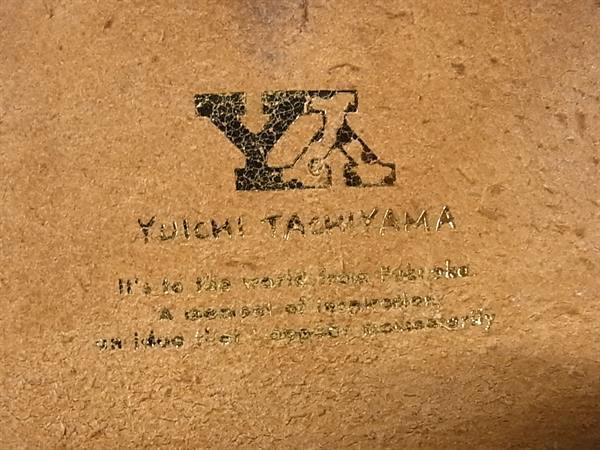 YUICHI TACHIYAMA
It's to the world from Fukuoka.
A moment of inspiration,
an idea that I appear momentarily